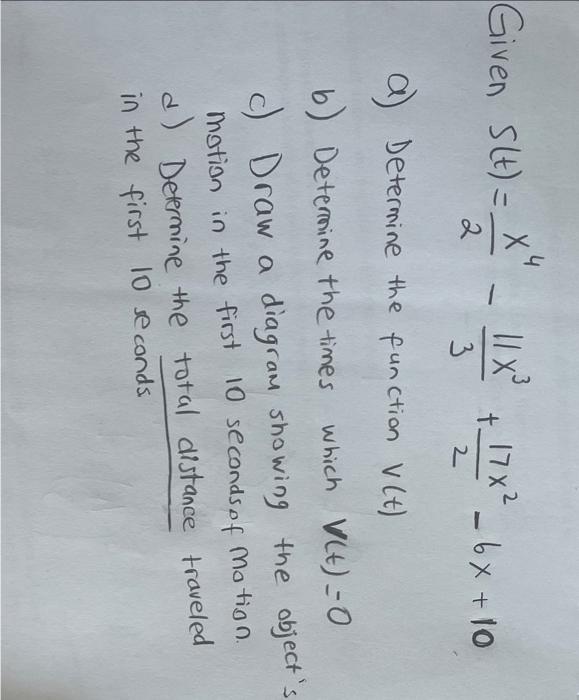 Given S(t) = x⁴/2 - 11x³/3 + 17x²/2 - 6x + 10
a) Determine the function V(t)
b) Determine the times which V(t) = 0
c) Draw a diagram showing the object's
motion in the first 10 seconds of motion.
d) Determine the total distance traveled
in the first 10 seconds